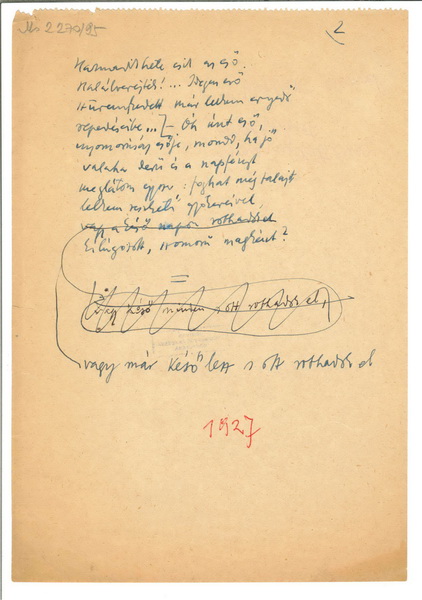 Ms 2270/95
2
Harmadik hete esik az eső.
Halálverejték! ... Idegen eső
Hüremfedett már lelkem enyedő
repedéseibe... – Óh únt eső,
nyomorúság esője, mondd, ha jő
valaha derű és a napfényt
meglátom egyszer: foghat még talajt
lelkem reszkető gyökereivel,
vagy a késő napon rothadsz el
Kilúgozott, szomorú magként?
vagy késő ott rothadsz el,
vagy már késő lesz s ott rothadsz el
1927